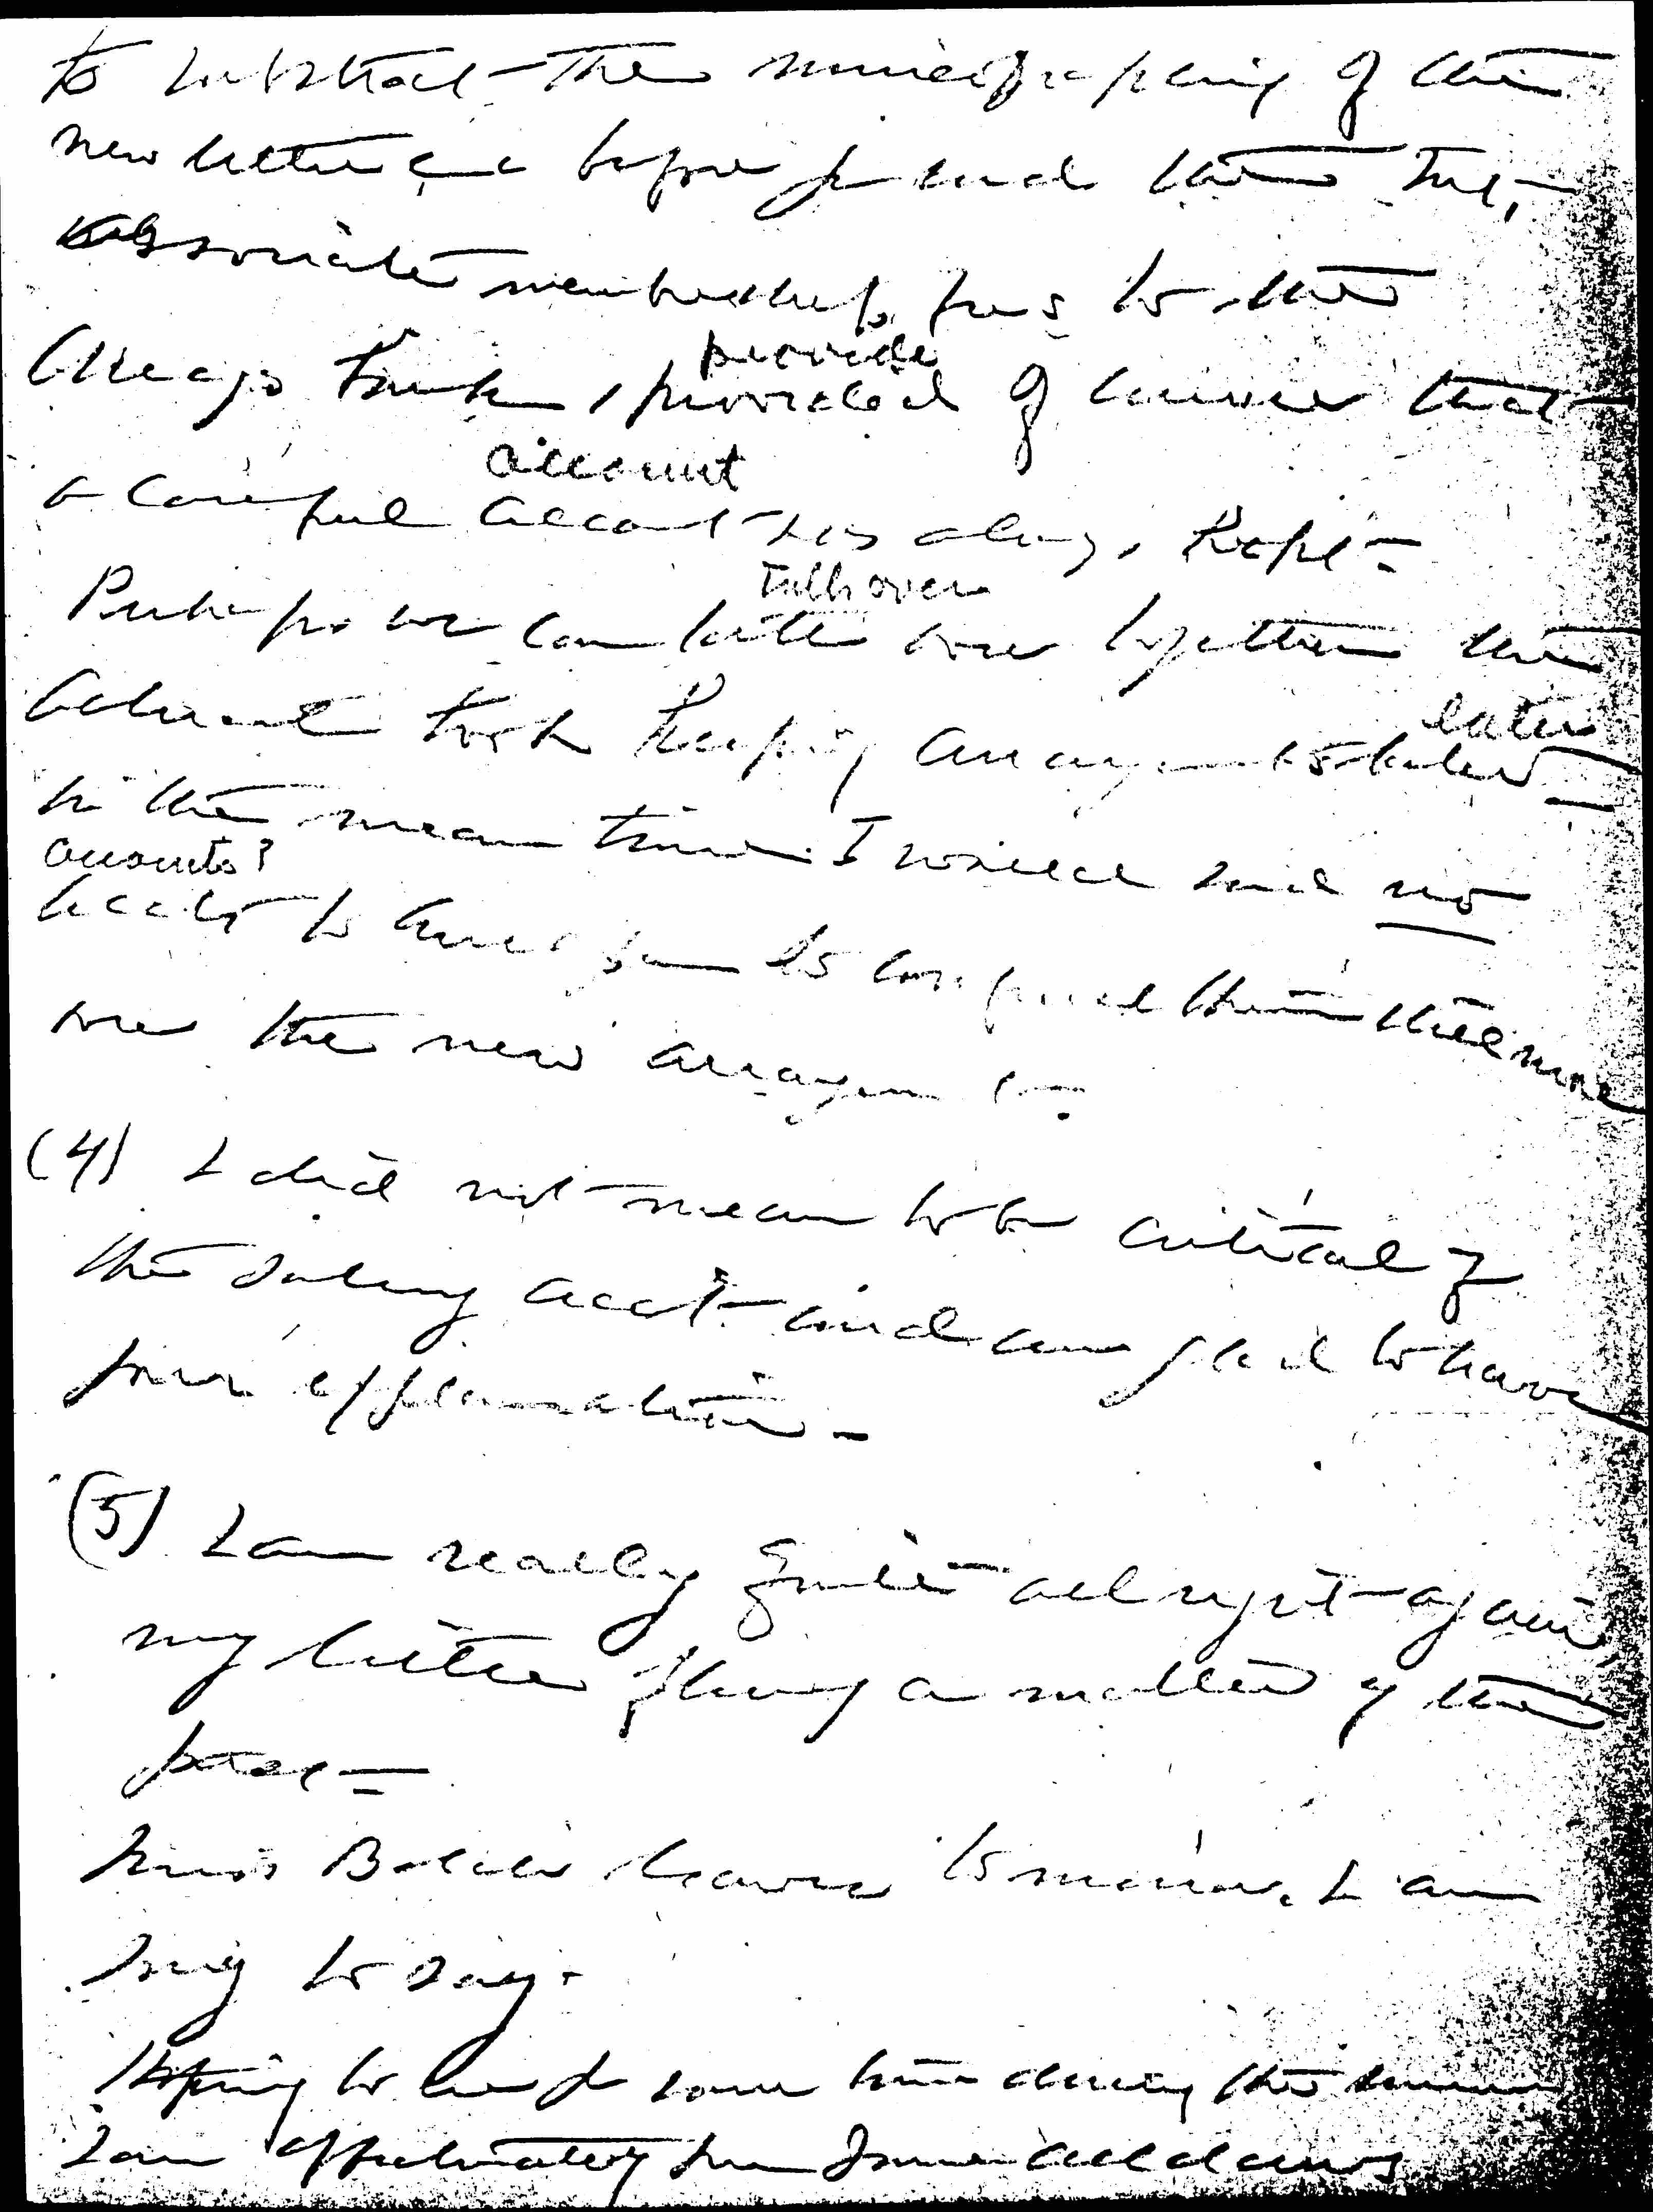 to subtract the mimeographing of the
newsletter etc before you send the
associate membership fees to the
Chicago Bank, provided of course that
provide
a careful account is always kept -
account
Perhaps we can talk over together the
talk over
actual book keeping arrangements later
later
In the mean time I would send no
accounts?
accts to Geneva
over the new arrangement.
(4) I did not mean to be critical of
the salary acct. and am glad to have
your explanation -
(5) I am really quite all right again
my letter being a matter of the
past -
Miss leaves tomorrow. I am
sorry to say.
Hoping to see you some time during the summer
I am affectionately yours Jane Addams